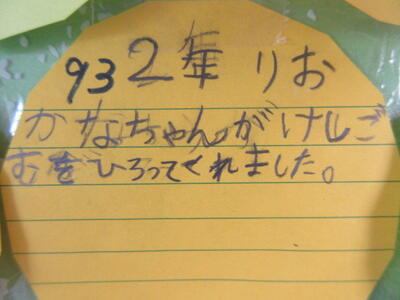 93 2年 りお
かなちゃんがけしご
むをひろってくれました。